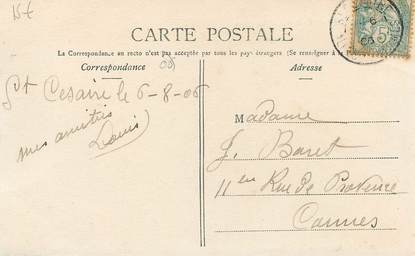 15 F
CARTE POSTALE
La Correspondance au recto n'est pas acceptée par tous les pays étrangers (Se renseigner à la
Correspondance
Adresse
05
St Cesaire le 6-8-06
mes amitiés
Louis
Madame
J. Baret
11 Rue de Provence
Cannes